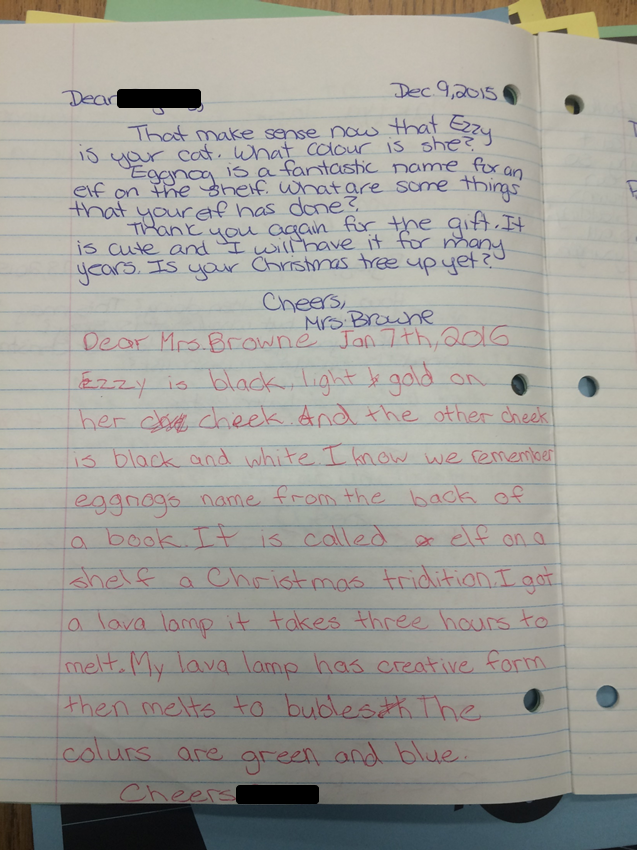 Dear
Dec 9, 2015
That make sense now that Ezzy
is your cat. What colour is she?
Eggnog is a fantastic name for an
elf on the shelf. What are some things
that your elf has done?
Thank you again for the gift. It
is cute and I will have it for many
years. Is your Christmas tree up yet?
Cheers,
Mrs. Browne
Dear Mrs. Browne Jan 7th, 2016
Ezzy is black, light & gold on
her cheek. And the other cheek
is black and white. I know we remember
eggnogs name from the back of
a book. It is called elf on a
shelf a Christmas tridition. I got
a lava lamp it takes three hours to
melt. My lava lamp has creative form
then melts to bubles The
colurs are green and blue.
Cheers